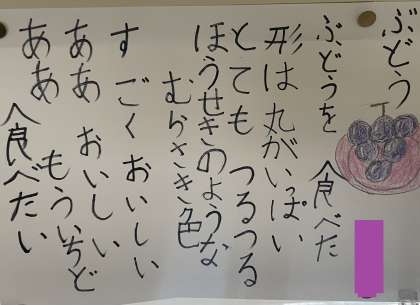 ぶどう
ぶどうを食べた
形は丸がいっぱい
とてもつるつる
ほうせきのような
むらさき色
すごくおいしい
ああおいしい
もういちど
ああ食べたい